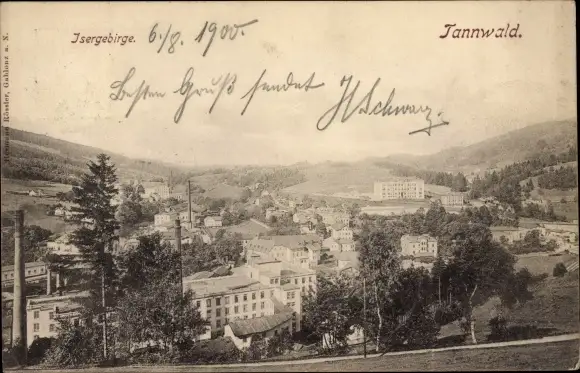 Isergebirge.
Tannwald.
6./8. 1900.
Besten Gruß sendet
Schwarz.
Rössler, Gablonz a. N.